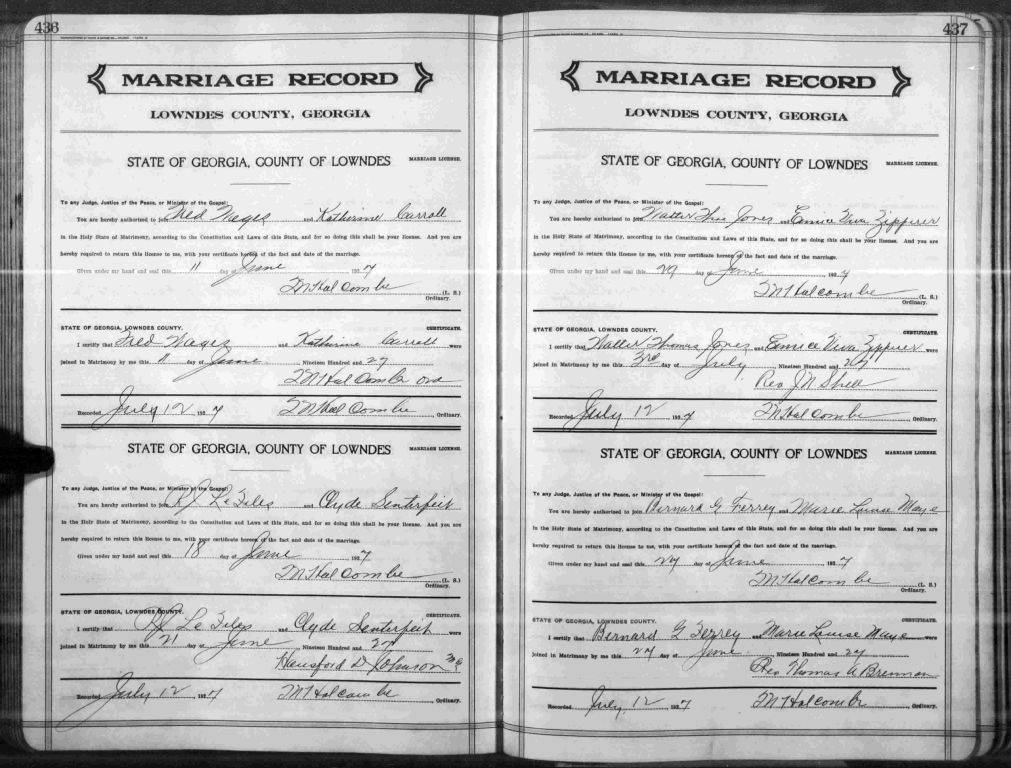 436
MARRIAGE RECORD
LOWNDES COUNTY, GEORGIA
STATE OF GEORGIA, COUNTY OF LOWNDES MARRIAGE LICENSE.
To any Judge, Justice of the Peace, or Minister of the Gospel:
You are hereby authorized to join Fred and Katherine Carroll
in the Holy State of Matrimony, according to the Constitution and Laws of this State, and for so doing this shall be your license. And you are
hereby required to return this license to me, with your certificate hereon of the fact and date of the marriage.
Given under my hand and seal this 11 day of June 1927
T M Holcombe (L. S.)
Ordinary.
STATE OF GEORGIA, LOWNDES COUNTY. CERTIFICATE.
I certify that Fred and Katherine Carroll were
joined in Matrimony by me this 11 day of June Nineteen Hundred and 27
T M Holcombe Ord
Recorded July 12 1927 T M Holcombe Ordinary.
STATE OF GEORGIA, COUNTY OF LOWNDES MARRIAGE LICENSE.
To any Judge, Justice of the Peace, or Minister of the Gospel:
You are hereby authorized to join R J Le Files and Clyde Senterfeit
in the Holy State of Matrimony, according to the Constitution and Laws of this State, and for so doing this shall be your license. And you are
hereby required to return this license to me, with your certificate hereon of the fact and date of the marriage.
Given under my hand and seal this 18 day of June 1927
T M Holcombe (L. S.)
Ordinary.
STATE OF GEORGIA, LOWNDES COUNTY. CERTIFICATE.
I certify that R J Le Files and Clyde Senterfeit were
joined in Matrimony by me this 21 day of June Nineteen Hundred and 27
Hansford D Johnson M G
Recorded July 12 1927 T M Holcombe Ordinary.
437
MARRIAGE RECORD
LOWNDES COUNTY, GEORGIA
STATE OF GEORGIA, COUNTY OF LOWNDES MARRIAGE LICENSE.
To any Judge, Justice of the Peace, or Minister of the Gospel:
You are hereby authorized to join Walter Jones and Eunice Viva Zipperer
in the Holy State of Matrimony, according to the Constitution and Laws of this State, and for so doing this shall be your license. And you are
hereby required to return this license to me, with your certificate hereon of the fact and date of the marriage.
Given under my hand and seal this 29 day of June 1927
T M Holcombe (L. S.)
Ordinary.
STATE OF GEORGIA, LOWNDES COUNTY. CERTIFICATE.
I certify that Walter Thomas Jones and Eunice Viva Zipperer were
joined in Matrimony by me this 3rd day of July Nineteen Hundred and 27
Rev J N Shell
Recorded July 12 1927 T M Holcombe Ordinary.
STATE OF GEORGIA, COUNTY OF LOWNDES MARRIAGE LICENSE.
To any Judge, Justice of the Peace, or Minister of the Gospel:
You are hereby authorized to join Bernard G Ferrey and Marie Louise Maye
in the Holy State of Matrimony, according to the Constitution and Laws of this State, and for so doing this shall be your license. And you are
hereby required to return this license to me, with your certificate hereon of the fact and date of the marriage.
Given under my hand and seal this 27 day of June 1927
T M Holcombe (L. S.)
Ordinary.
STATE OF GEORGIA, LOWNDES COUNTY. CERTIFICATE.
I certify that Bernard G Ferrey and Marie Louise Maye were
joined in Matrimony by me this 27 day of June Nineteen Hundred and 27
Rev Thomas A Brennan
Recorded July 12 1927 T M Holcombe Ordinary.